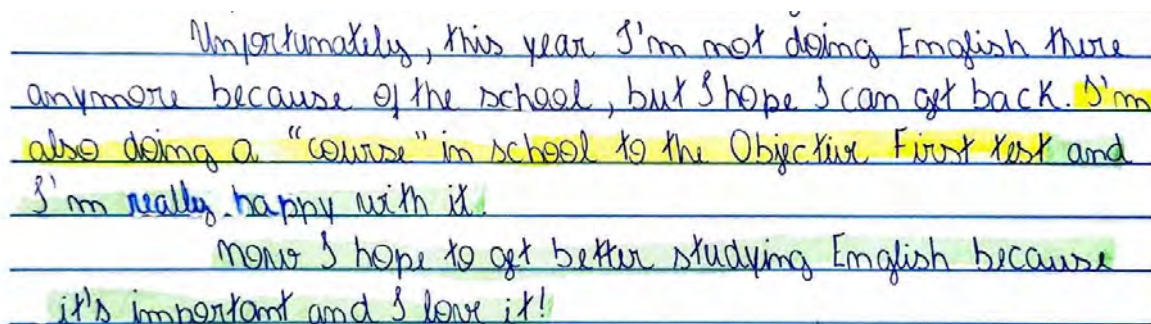 Unfortunately, this year I'm not doing English there
anymore because of the school, but I hope I can get back. I'm
also doing a "course" in school to the Objective First test and
I'm really happy with it.
Now I hope to get better studying English because
it's important and I love it!